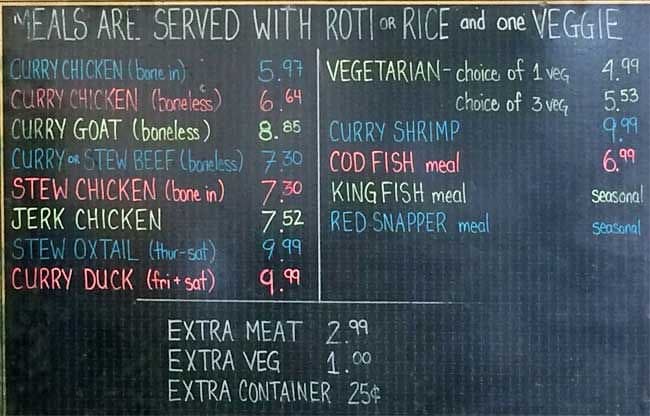 MEALS ARE SERVED WITH ROTI OR RICE and one VEGGIE
CURRY CHICKEN (bone in) 5.97
CURRY CHICKEN (boneless) 6.64
CURRY GOAT (boneless) 8.85
CURRY OR STEW BEEF (boneless) 7.30
STEW CHICKEN (bone in) 7.30
JERK CHICKEN 7.52
STEW OXTAIL (thur-sat) 9.99
CURRY DUCK (fri + sat) 9.99
VEGETARIAN - choice of 1 veg 4.99
choice of 3 veg 5.53
CURRY SHRIMP 9.99
COD FISH meal 6.99
KING FISH meal seasonal
RED SNAPPER meal seasonal
EXTRA MEAT 2.99
EXTRA VEG 1.00
EXTRA CONTAINER 25¢